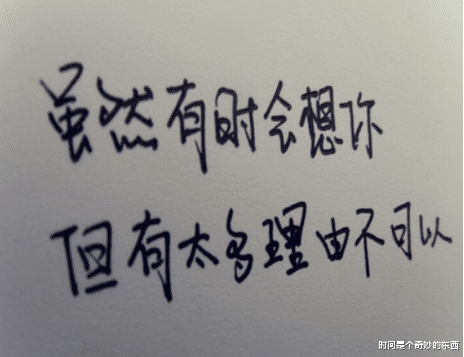 虽然有时会想你
但有太多理由不可以
时间是个奇妙的东西